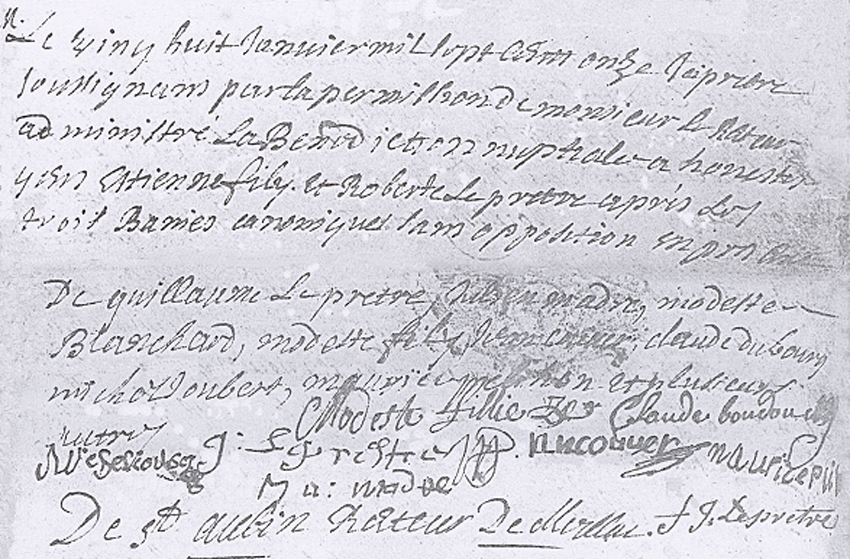 M.
Le vinq huit Janvier mil sept cent onze Je prêtre
soussignant par la permission de monsieur le Rateur
ad ministré La Bened iction nuptiale a honestes
gens Etienne fily. Et Roberte Le pretre après Les
trois Banies canoniques sans opposition en presence
De guillaume Le pretre, Julien madre, modeste
Blanchard, modeste fily, Jean couuer, claude du bourg
michel Joubert, maurice et plusieurs
autres
Modeste fillie Claude
g: Leprestre J. couuer maurice
Ju: madre
De St aubin Rateur De Merllac. J. Lespretre